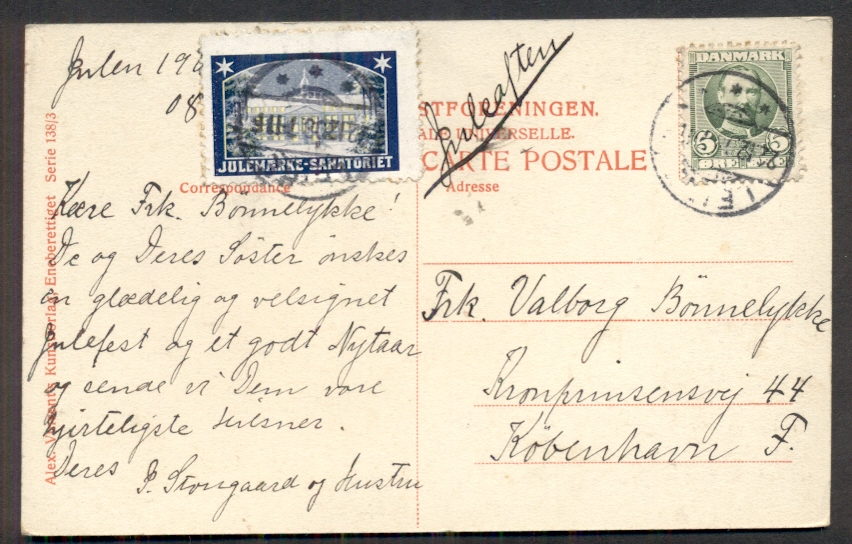 Julen 19
08
JULEMÆRKE-SANATORIET
Juleaften
DANMARK
5 5
ØRE
STFORENINGEN.
ALE UNIVERSELLE.
CARTE POSTALE
Correspondance
Adresse
Kære Frk. Bönnelykke!
De og Deres Söster önskes
en glædelig og velsignet
Julefest og et godt Nytaar
og sende vi Dem vore
hjerteligste Hilsner.
Deres
P. Stongaard og Hustru
Frk. Valborg Bönnelykke
Kronprinsensvej 44
Köbenhavn F.
Alex. Vincents Kunstforlag, Eneberettiget Serie 138/3